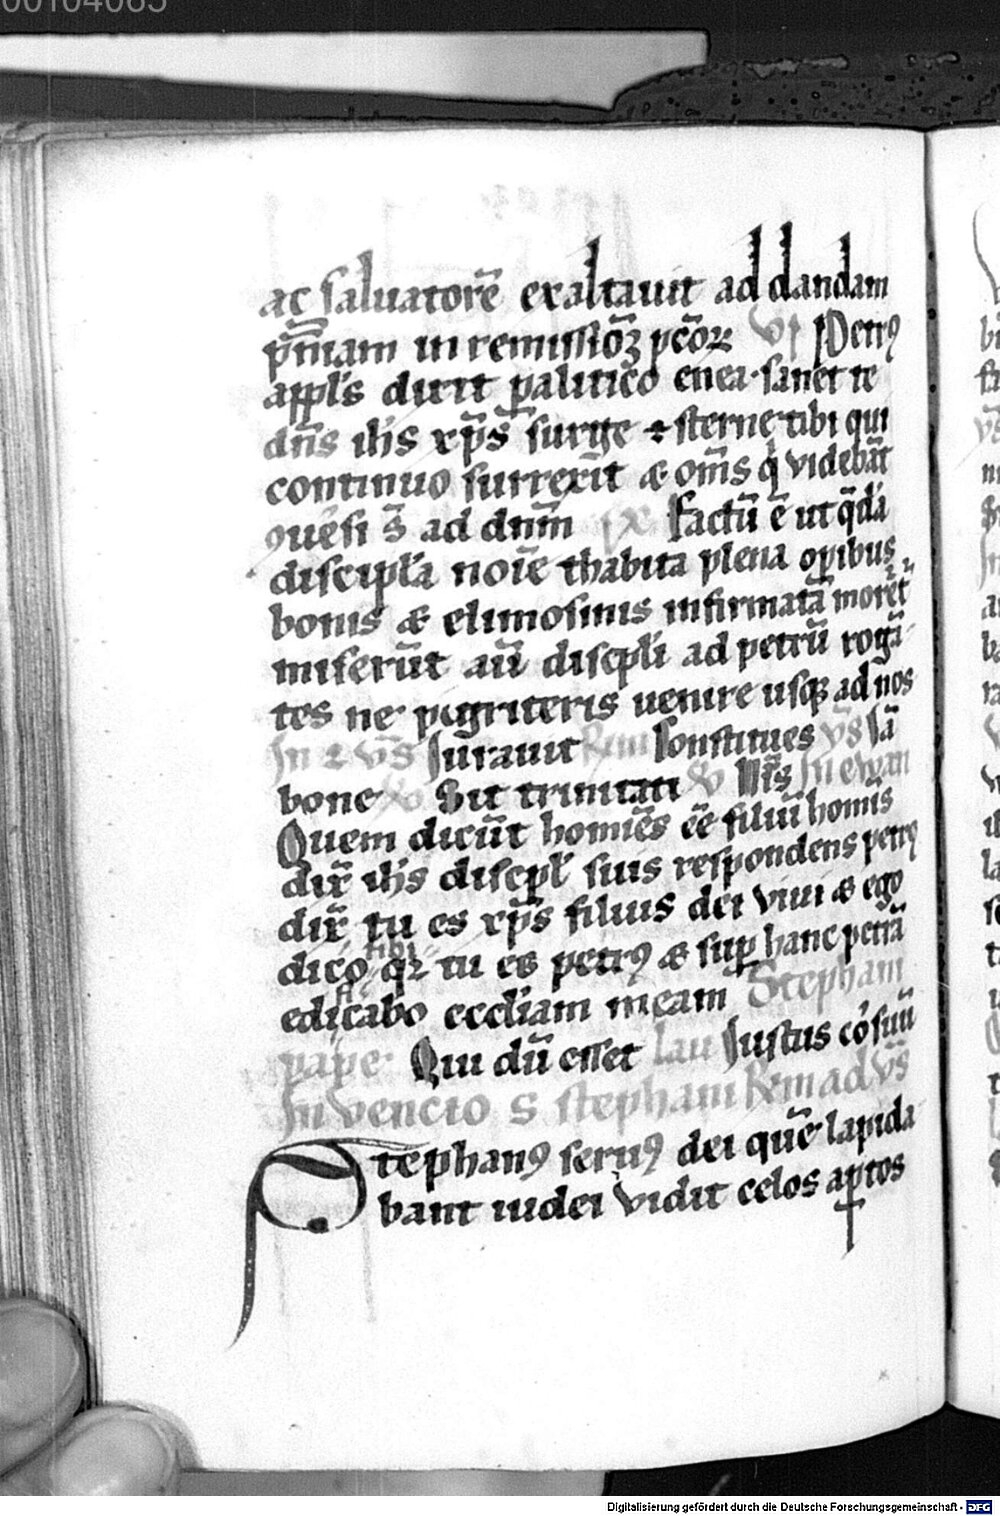 00104085
ac saluatorē exaltauit ad dandam
pn̄iam in remissiōꝫ pcc̄oꝝ VI Petrꝰ
appl's dixit palitico enea sanet te
dn̄s ih̄s xp̄s surge ⁊ sterne tibi qui
continuo surrexit & om̄s q̇ videbāt
ꝯuersi s̄ ad dnm̄ Factū ē ut q̄dā
discipl'a noīe thabita plena oꝑibus
bonis & elimosinis infirmatā moret̄
miserūt aūt discipl'i ad petrū rogā
tes ne pigriteris uenire usqꝫ ad nos
In 2 vs̄ Iurauit Constitues vs̄ Iā
bone Sit trinitati In ewan
Quem dicūt homīes ēē filiū homīs
dix̄ ih̄s discipl' suis respondens petrꝰ
dix̄ tu es xp̄s filius dei viui & ego
dico tibi qꝛ tu es petrꝰ & suꝑ hanc petrā
edificabo eccl'iam meam Stephani
pape Qui dū esset lau Iustus cōr suū
Invencio S stephani ad vs̄
Stephanꝰ seruꝰ dei quē lapida
bant iudei vidit celos aꝑtos
Digitalisierung gefördert durch die Deutsche Forschungsgemeinschaft - DFG